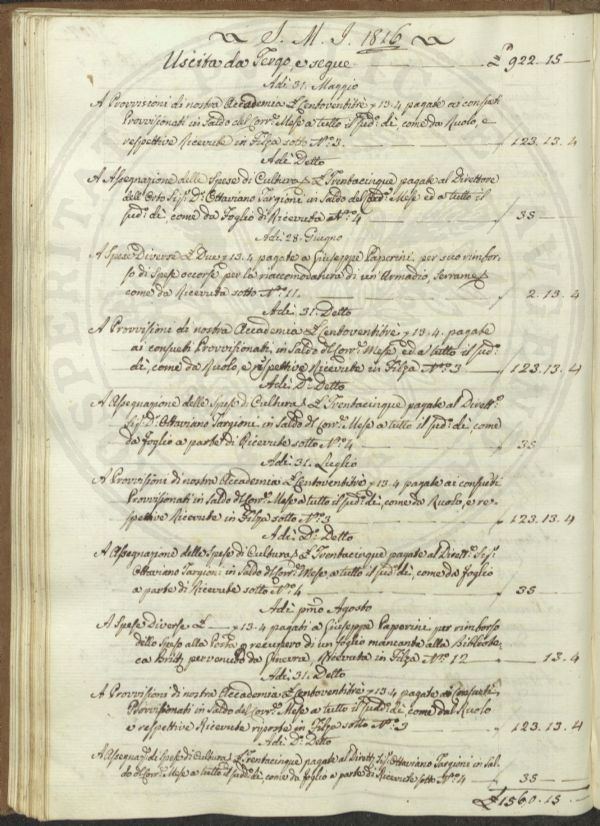 S. M. I. 1816
Uscita da Tergo, e segue £ 922.15
Adì 31. Maggio
A Provvisioni di nostra Accademia £ Centoventitrè, 13.4 pagate ai consueti
Provvisionati in Saldo del Corr.e Mese a tutto il sud.o dì, come da Ruolo, e
respettive Ricevute in Filza sotto N.o 3. 123.13.4
Adì Detto
A Assegnazione delle Spese di Cultura £ Trentacinque pagate al Direttore
dell'Orto Sig.e D.e Ottaviano Targioni in Saldo del Corr.e Mese ed a tutto il
sud.o dì, come da Foglio di Ricevuta N.o 4 35
Adì 28. Giugno
A Spese Diverse £ Due, 13.4 pagate a Giuseppe Paperini per suo rimbor-
so di Spese occorse per la riaccomodatura di un'Armadio, Serrame &
come da Ricevuta sotto N.o 11. 2.13.4
Adì 31. Detto
A Provvisione di nostra Accademia £ Centoventitrè, 13.4. pagate
ai consueti Provvisionati, in Saldo d. Corr.e Mese ed a tutto il sud.o
dì, come da Ruolo, e respettive Ricevute in Filza N.o 3 123.13.4
Adì D.o Detto
A Assegnazione delle Spese d. Cultura £ Trentacinque pagate al Dirett.e
Sig.e D.e Ottaviano Targioni in Saldo d. Corr.e Mese a tutto il sud.o dì, come
da foglio a parte di Ricevute sotto N.o 4 35
Adì 31. Luglio
A Provvisioni di nostra Accademia £ Centoventitrè, 13.4 pagate ai consueti
Provvisionati in Saldo d. Corr.e Mese a tutto il sud.o dì, come da Ruolo, e re-
spettive Ricevute in Filza sotto N.o 3 123.13.4
Adì D.o Detto
A Assegnazione delle Spese di Cultura £ Trentacinque pagate al Dirett.e Sig.e
Ottaviano Targioni in Saldo d. Corr.e Mese a tutto il sud.o dì, come da foglio
a parte di Ricevute sotto N.o 4 35
Adì pmo Agosto
A Spese Diverse £ 13.4 pagati a Giuseppe Paperini per rimborso
dello Speso alla Posta recupero di un foglio mancante alla Bibliote-
ca Brit. pervenuto da Ginevra, Ricevuta in Filza N.o 12 13.4
Adì 31. Detto
A Provvisioni di nostra Accademia £ Centoventitrè, 13.4 pagate ai Consueti
Provvisionati in Saldo del Corr.e Mese a tutto il Sud.o dì come dal Ruolo
e respettive Ricevute riposte in Filza sotto N.o 3 123.13.4
Adì D.o Detto
A Assegnaz.e di Spese di Cultura £ Trentacinque pagate al Dirett.e Sig.e Ottaviano Targioni in Sal-
do d. Corr.e Mese a tutto il sud.o dì, come da foglio a parte di Ricevute sotto N.o 4 35
£ 1560.15